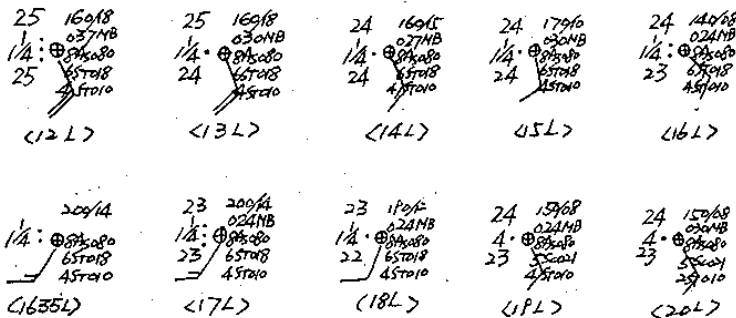 25 160/18
037MB
1 1/4 8As080
25 6ST018
4ST010
<12L>
25 160/18
030MB
1 1/4 8As080
24 6ST018
4ST010
<13L>
24 160/15
027MB
1 1/4 8As080
24 6ST018
4ST010
<14L>
24 179/10
030MB
1 1/4 8As080
24 6ST018
4ST010
<15L>
24 140/08
024MB
1 1/4 8As080
23 6ST018
4ST010
<16L>
200/14
1 1/4 8As080
6ST018
4ST010
<1635L>
23 200/14
024MB
1 1/4 8As080
23 6ST018
4ST010
<17L>
23
024MB
1 1/4 8As080
22 6ST018
4ST010
<18L>
24 150/08
024MB
4 8As080
23 5Sc021
4ST010
<19L>
24 150/08
030MB
4 8As080
23 5Sc021
2ST010
<20L>